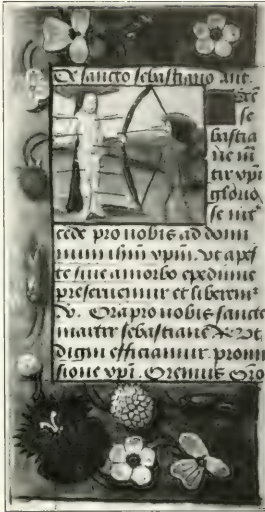 De sancto sebastiano ant.
se
bastia
ne m̄
tir xp̄i
glorio
se int̄
cede pro nobis ad domi
num ih̄m xp̄um. ut a pes
te sive a morbo epidimie
preservemur et liberem᷒
V. Ora pro nobis sancte
martir sebastiane R Ut
digni efficiamur promi
sione xp̄i. Oremus Oro